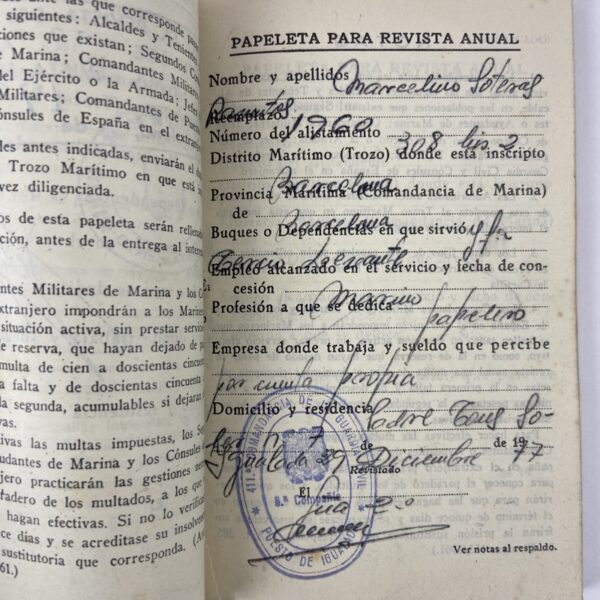 ales ante las que corresponde pasar
siguientes: Alcaldes y Tenientes
ciones que existan; Segundos Co
de Marina; Comandantes Militares
del Ejército o la Armada; Jefes
Militares; Comandantes de Pues
Cónsules de España en el extranj
des antes indicadas, enviarán el d
Trozo Marítimo en que está in
vez diligenciada.
os de esta papeleta serán rellena
ción, antes de la entrega al intere
antes Militares de Marina y los C
extranjero impondrán a los Marin
situación activa, sin prestar servic
de reserva, que hayan dejado de p
multa de cien a doscientas cincuen
a falta y de doscientas cincuenta
la segunda, acumulables si dejaran
vas.
tivas las multas impuestas, los Se
udantes de Marina y los Cónsules
njero practicarán las gestiones nece
adero de los multados, a los que
hagan efectivas. Si no lo verific
ce días y se acreditase su insolven
sustitutoria que corresponda. (Ar
61.)
PAPELETA PARA REVISTA ANUAL
Nombre y apellidos Marcelino Soteras
Reemplazo 1960
Número del alistamiento 308 bis 2
Distrito Marítimo (Trozo) donde está inscripto
Barcelona
Provincia Marítima (Comandancia de Marina)
de Barcelona
Buques o Dependencias en que sirvió
Tercio Levante
Empleo alcanzado en el servicio y fecha de con-
cesión Marino
Profesión a que se dedica papelero
Empresa donde trabaja y sueldo que percibe
por cuenta propia
Domicilio y residencia Padre Tous So-
nº 7
Igualada 29 de Diciembre de 1977
Revistado
El
411.ª COMANDANCIA DE LA GUARDIA CIVIL
6.ª Compañía
PUESTO DE IGUALADA
Ver notas al respaldo.